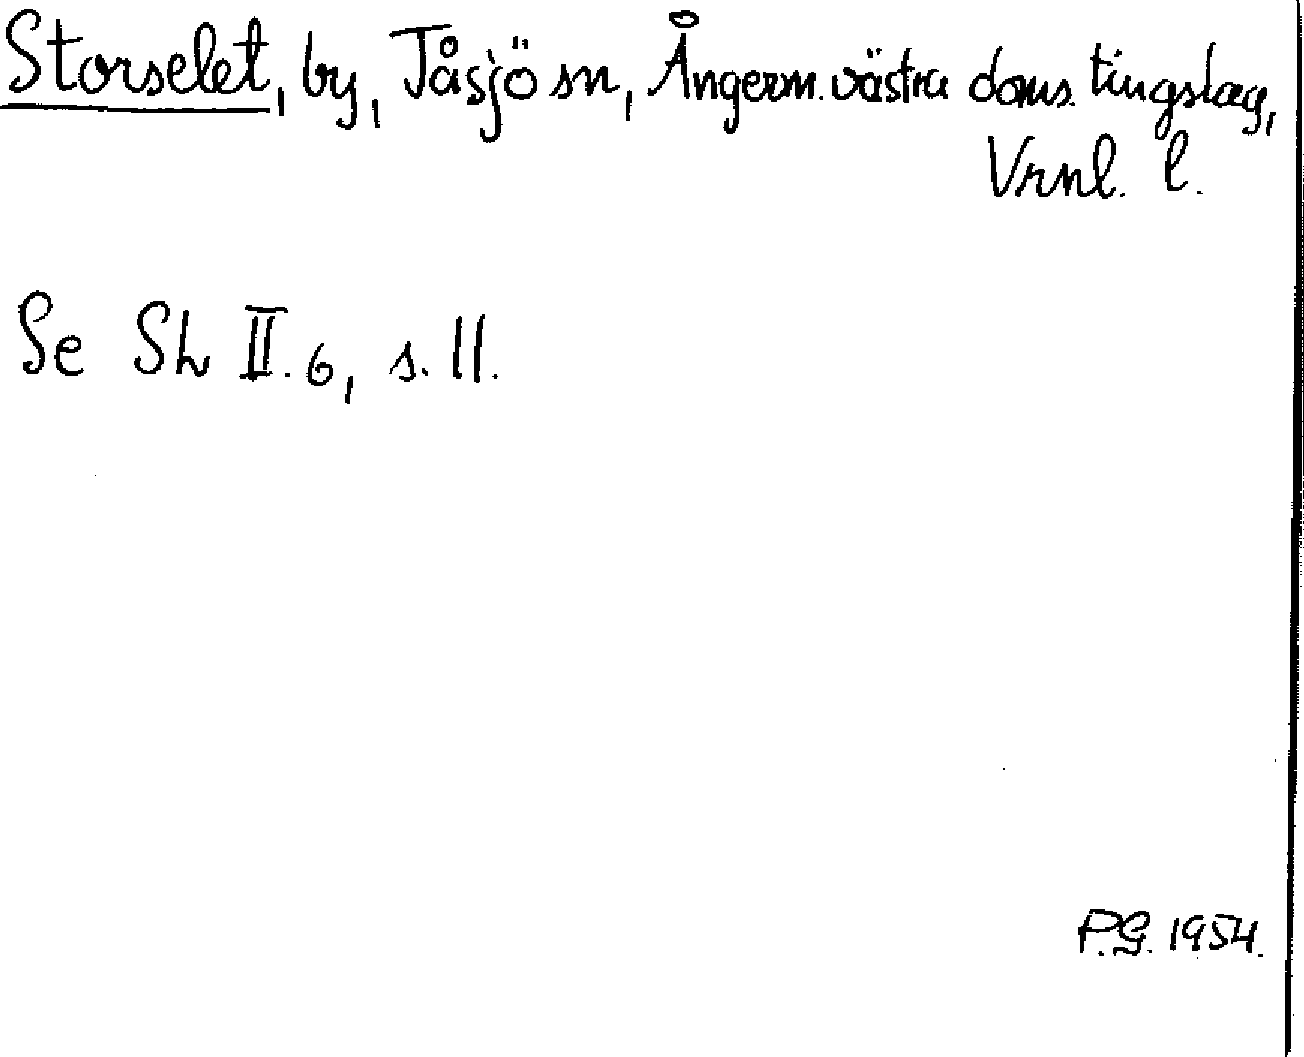 Storselet, by, Tåsjö sn, Ångerm. västra doms. tingslag,
Vrnl. l.
Se Sh II. 6, s. 11.
P.G. 1954.